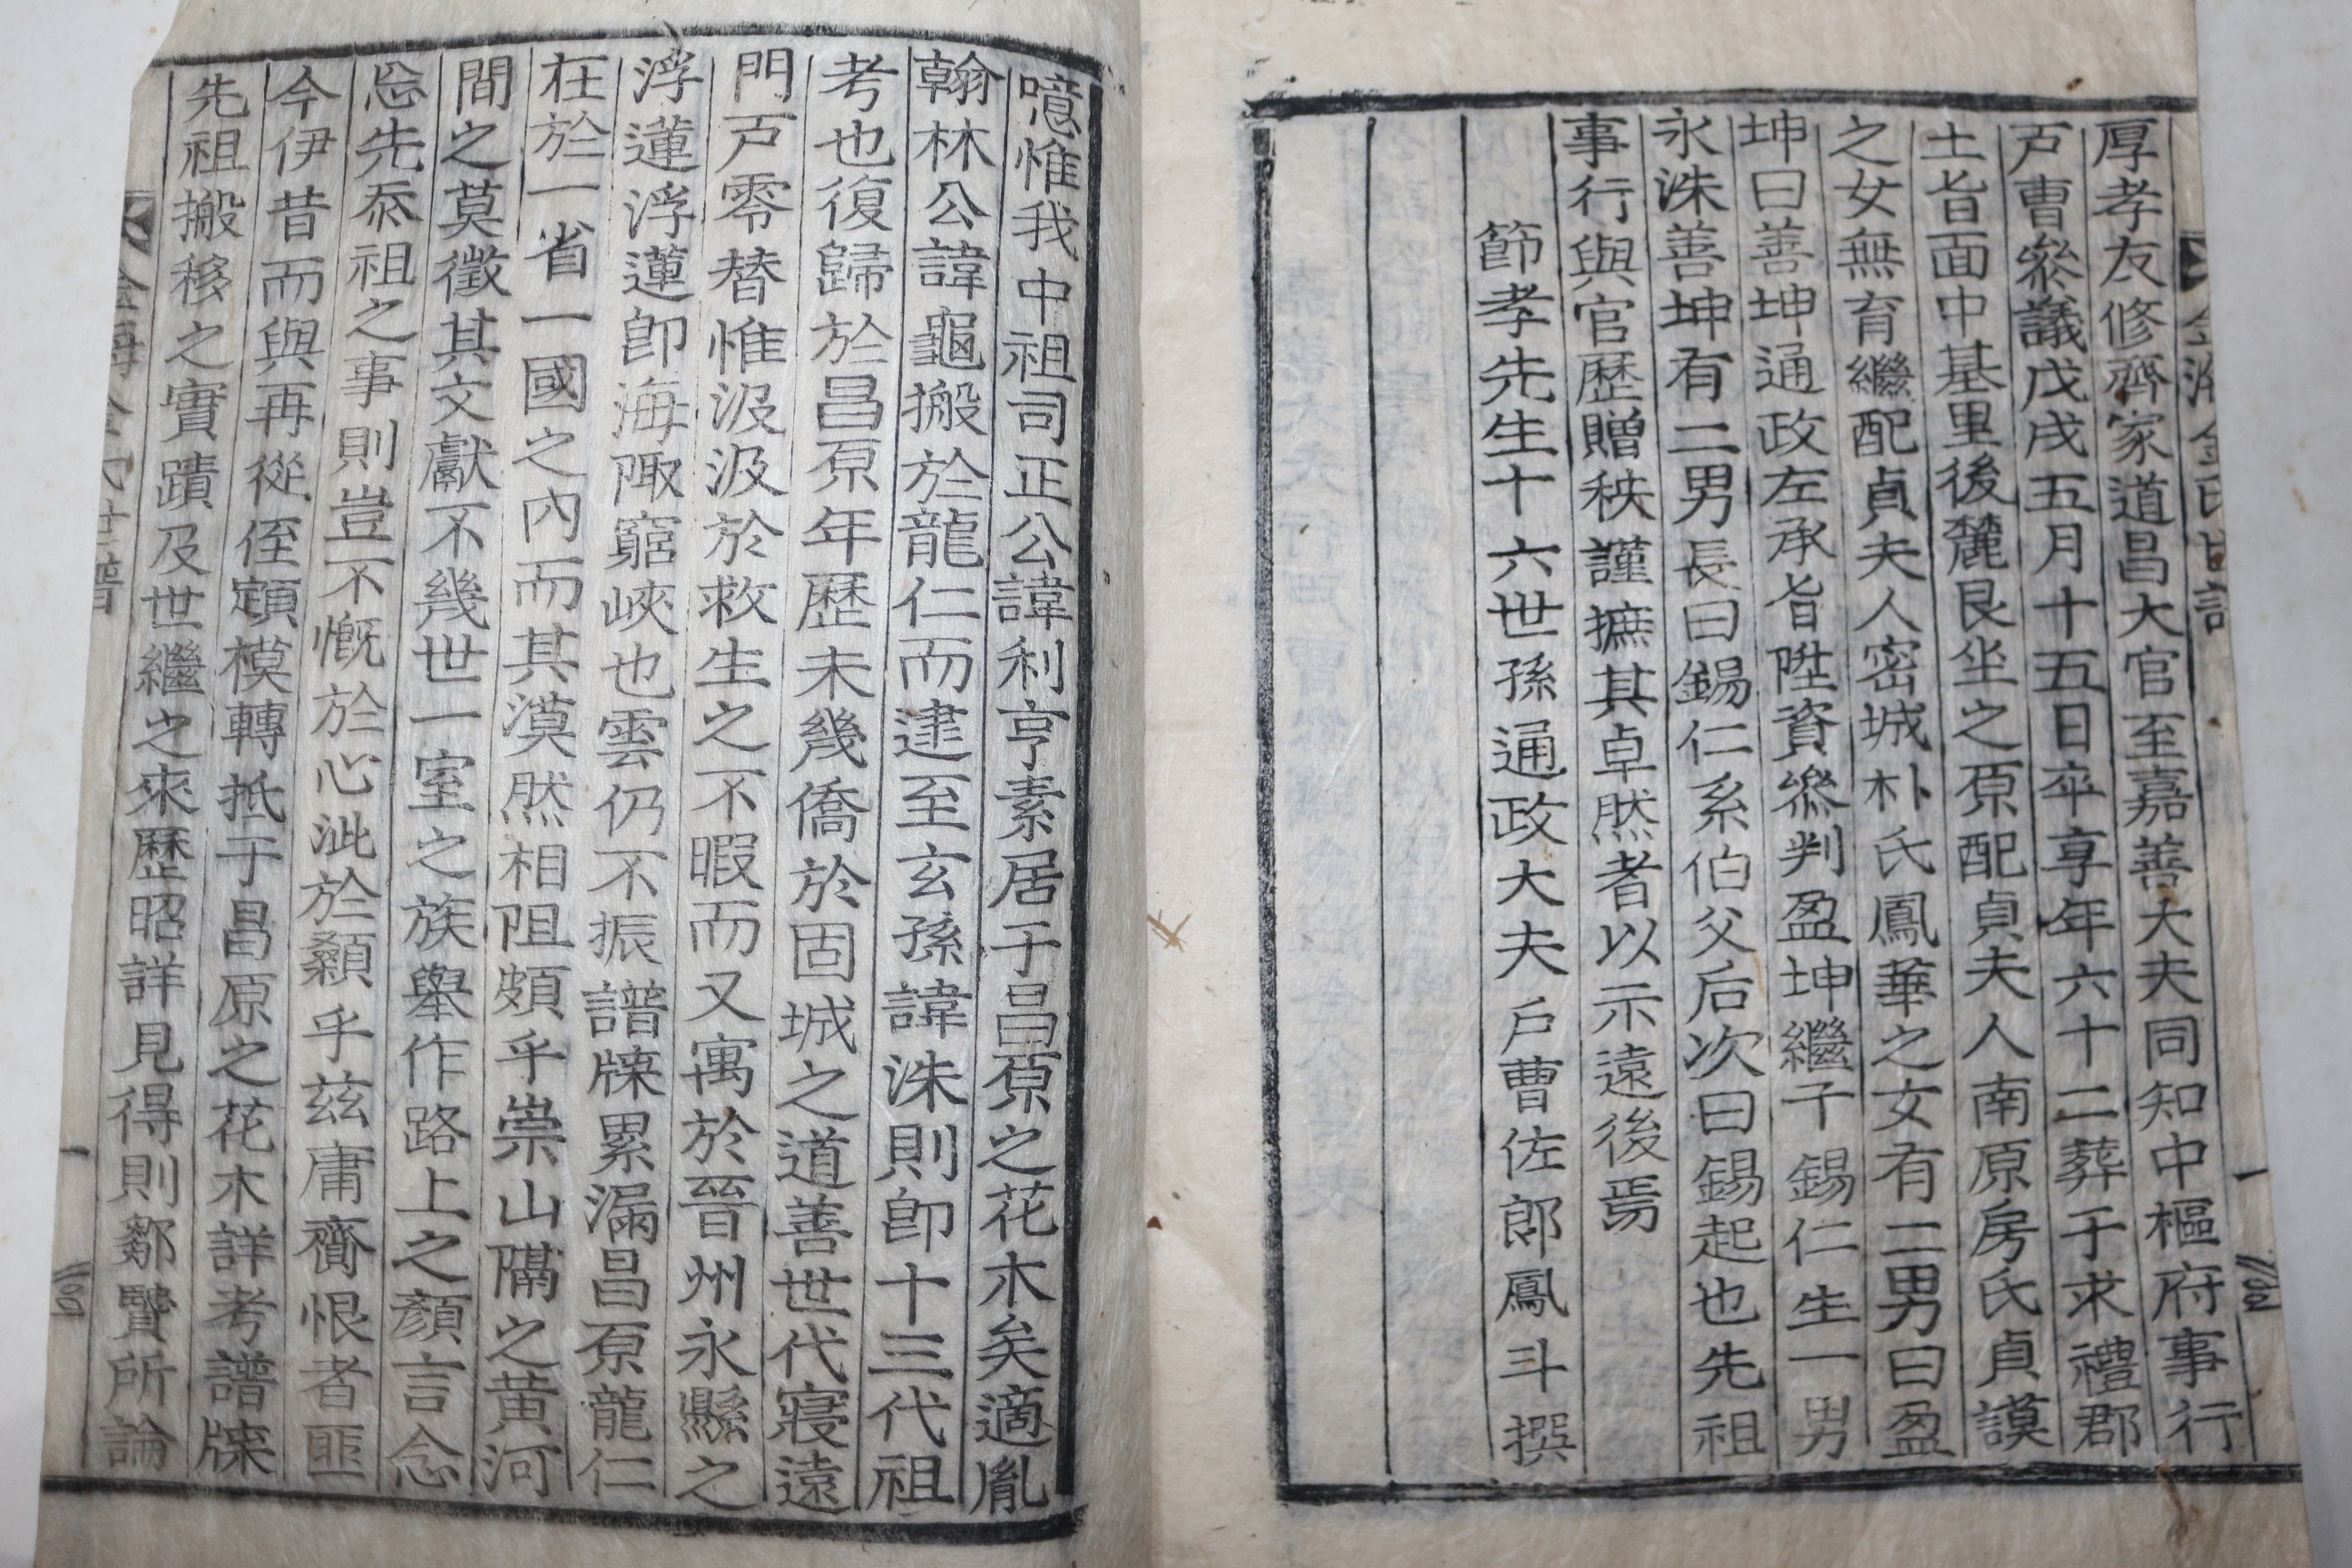 厚孝友修齊家道昌大官至嘉善大夫同知中樞府事行
戶曹參議戊戌五月十五日卒享年六十二葬于求禮郡
土旨面中基里後麓艮坐之原配貞夫人南原房氏貞謨
之女無育繼配貞夫人密城朴氏鳳華之女有二男曰盈
坤曰善坤通政左承旨陞資參判盈坤繼子錫仁生一男
永洙善坤有二男長曰錫仁系伯父后次曰錫起也先祖
事行與官歷贈秩謹摭其卓然者以示遠後焉
節孝先生十六世孫通政大夫戶曹佐郎鳳斗撰
噫惟我中祖司正公諱利亨素居于昌原之花木矣適胤
翰林公諱龜搬於龍仁而逮至玄孫諱洙則卽十三代祖
考也復歸於昌原年歷未幾僑於固城之道善世代寢遠
門戶零替惟汲汲於救生之不暇而又寓於晉州永縣之
浮蓮浮蓮卽海陬窮峽也雲仍不振譜牒累漏昌原龍仁
在於一省一國之內而其漠然相阻頗乎崇山隔之黃河
間之莫徵其文獻不幾世一室之族擧作路上之顏言念
忘先忝祖之事則豈不慨於心泚於顙乎玆庸齎恨者匪
今伊昔而與再從侄模轉抵于昌原之花木詳考譜牒
先祖搬移之實蹟及世繼之來歷昭詳見得則鄒賢所論
金海金氏世譜
一